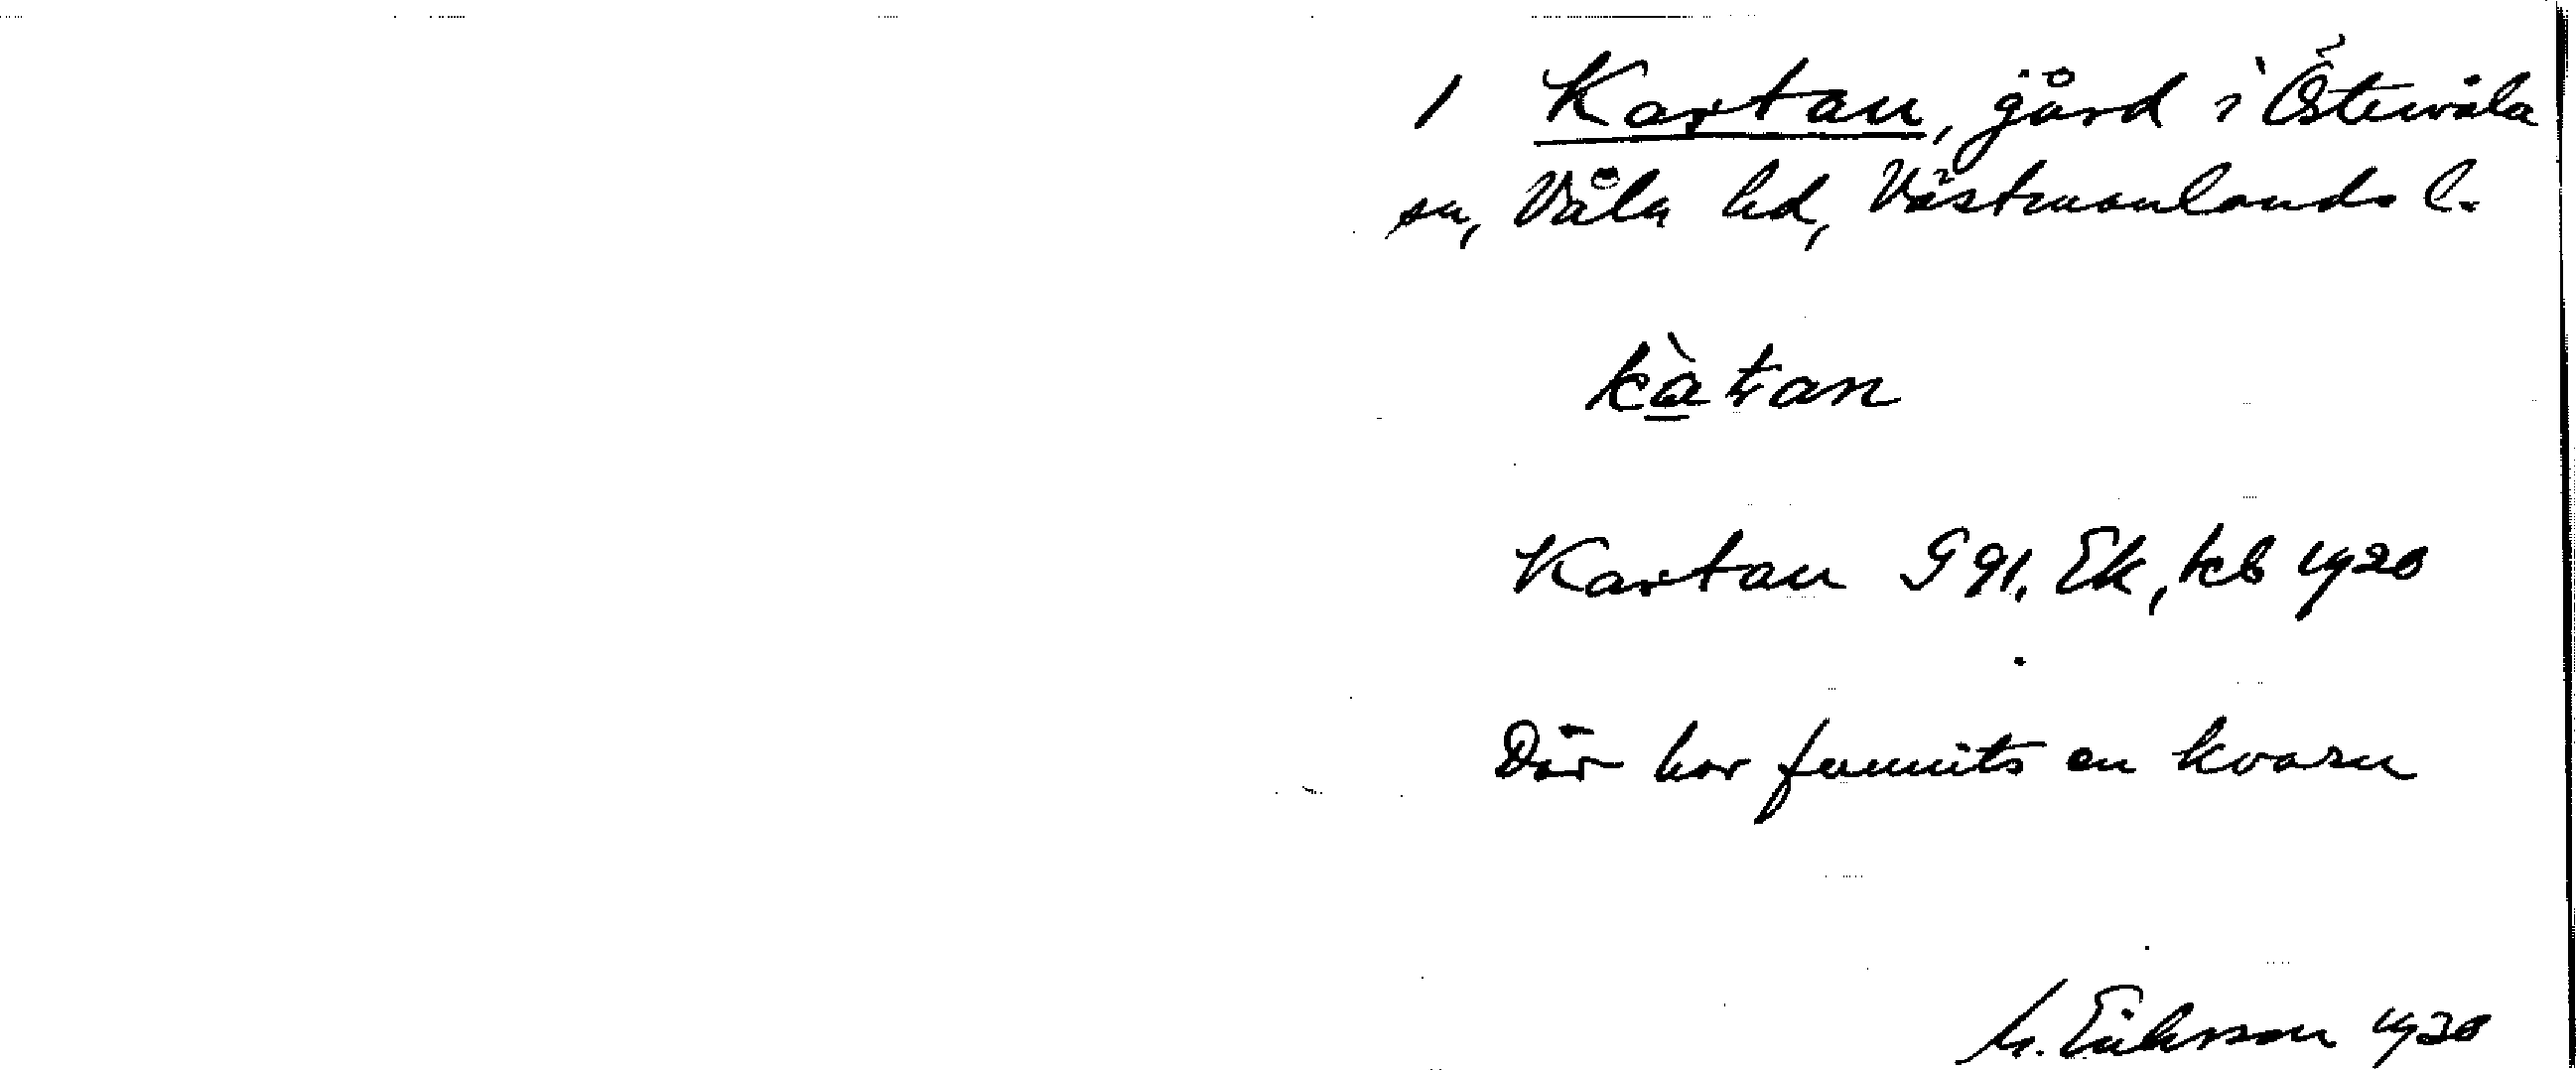 1 Kartan, gård i Östervåla
sn, Våla hd, Västmanlands l.
kàtan
Kartan G 91. Ek, kb 1920
Där har funnits en kvarn
M. Eriksson 1930